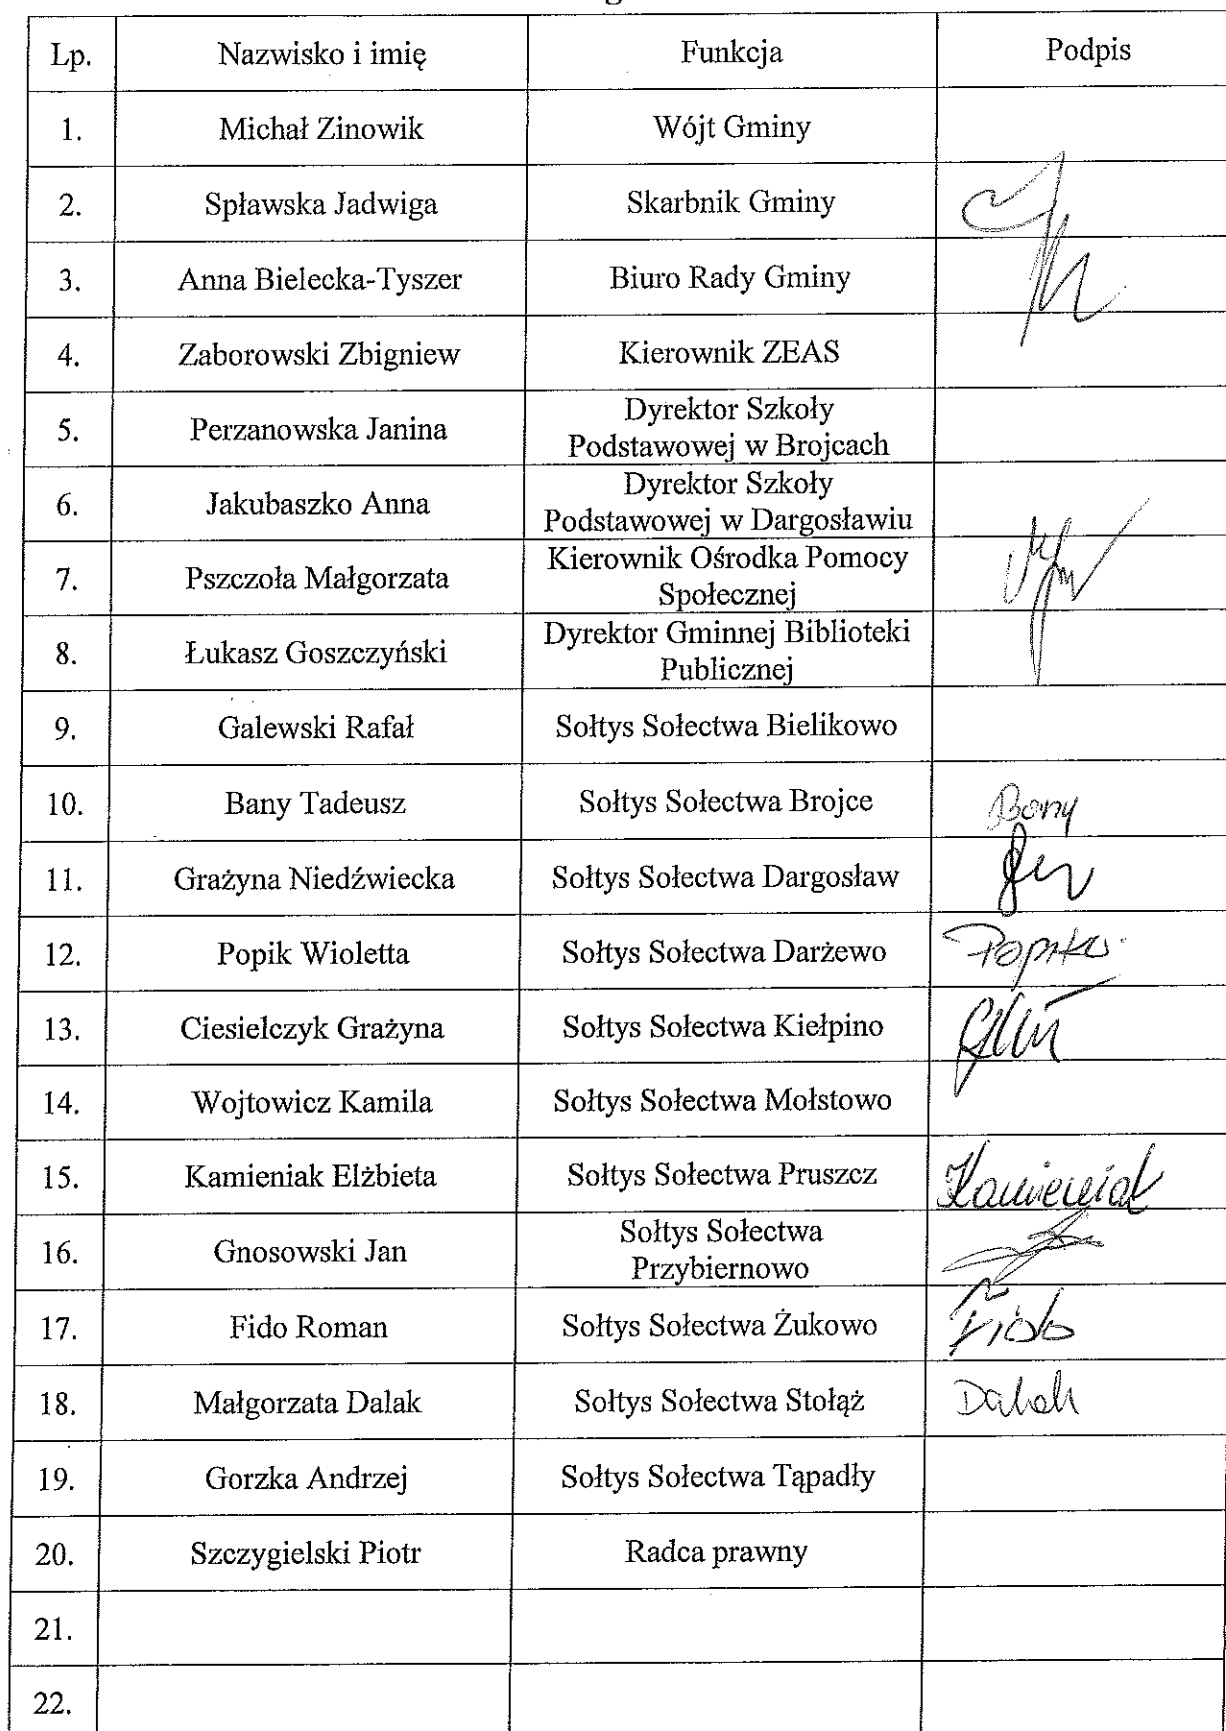 Lp. Nazwisko i imię Funkcja Podpis
1. Michał Zinowik Wójt Gminy
2. Spławska Jadwiga Skarbnik Gminy
3. Anna Bielecka-Tyszer Biuro Rady Gminy
4. Zaborowski Zbigniew Kierownik ZEAS
5. Perzanowska Janina Dyrektor Szkoły
Podstawowej w Brojcach
6. Jakubaszko Anna Dyrektor Szkoły
Podstawowej w Dargosławiu
7. Pszczoła Małgorzata Kierownik Ośrodka Pomocy
Społecznej
8. Łukasz Goszczyński Dyrektor Gminnej Biblioteki
Publicznej
9. Galewski Rafał Sołtys Sołectwa Bielikowo
10. Bany Tadeusz Sołtys Sołectwa Brojce Bany
11. Grażyna Niedźwiecka Sołtys Sołectwa Dargosław
12. Popik Wioletta Sołtys Sołectwa Darżewo
13. Ciesielczyk Grażyna Sołtys Sołectwa Kiełpino
14. Wojtowicz Kamila Sołtys Sołectwa Mołstowo
15. Kamieniak Elżbieta Sołtys Sołectwa Pruszcz Kamieniak
16. Gnosowski Jan Sołtys Sołectwa
Przybiernowo
17. Fido Roman Sołtys Sołectwa Żukowo Fido
18. Małgorzata Dalak Sołtys Sołectwa Stołąż Dalak
19. Gorzka Andrzej Sołtys Sołectwa Tąpadły
20. Szczygielski Piotr Radca prawny
21.
22.